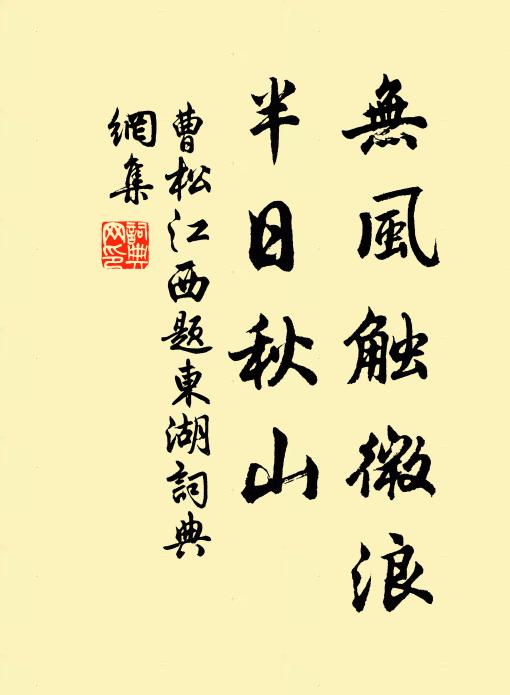 無風触微浪
半日秋山
曹松江西题東湖詞典
網集
詞典
网印